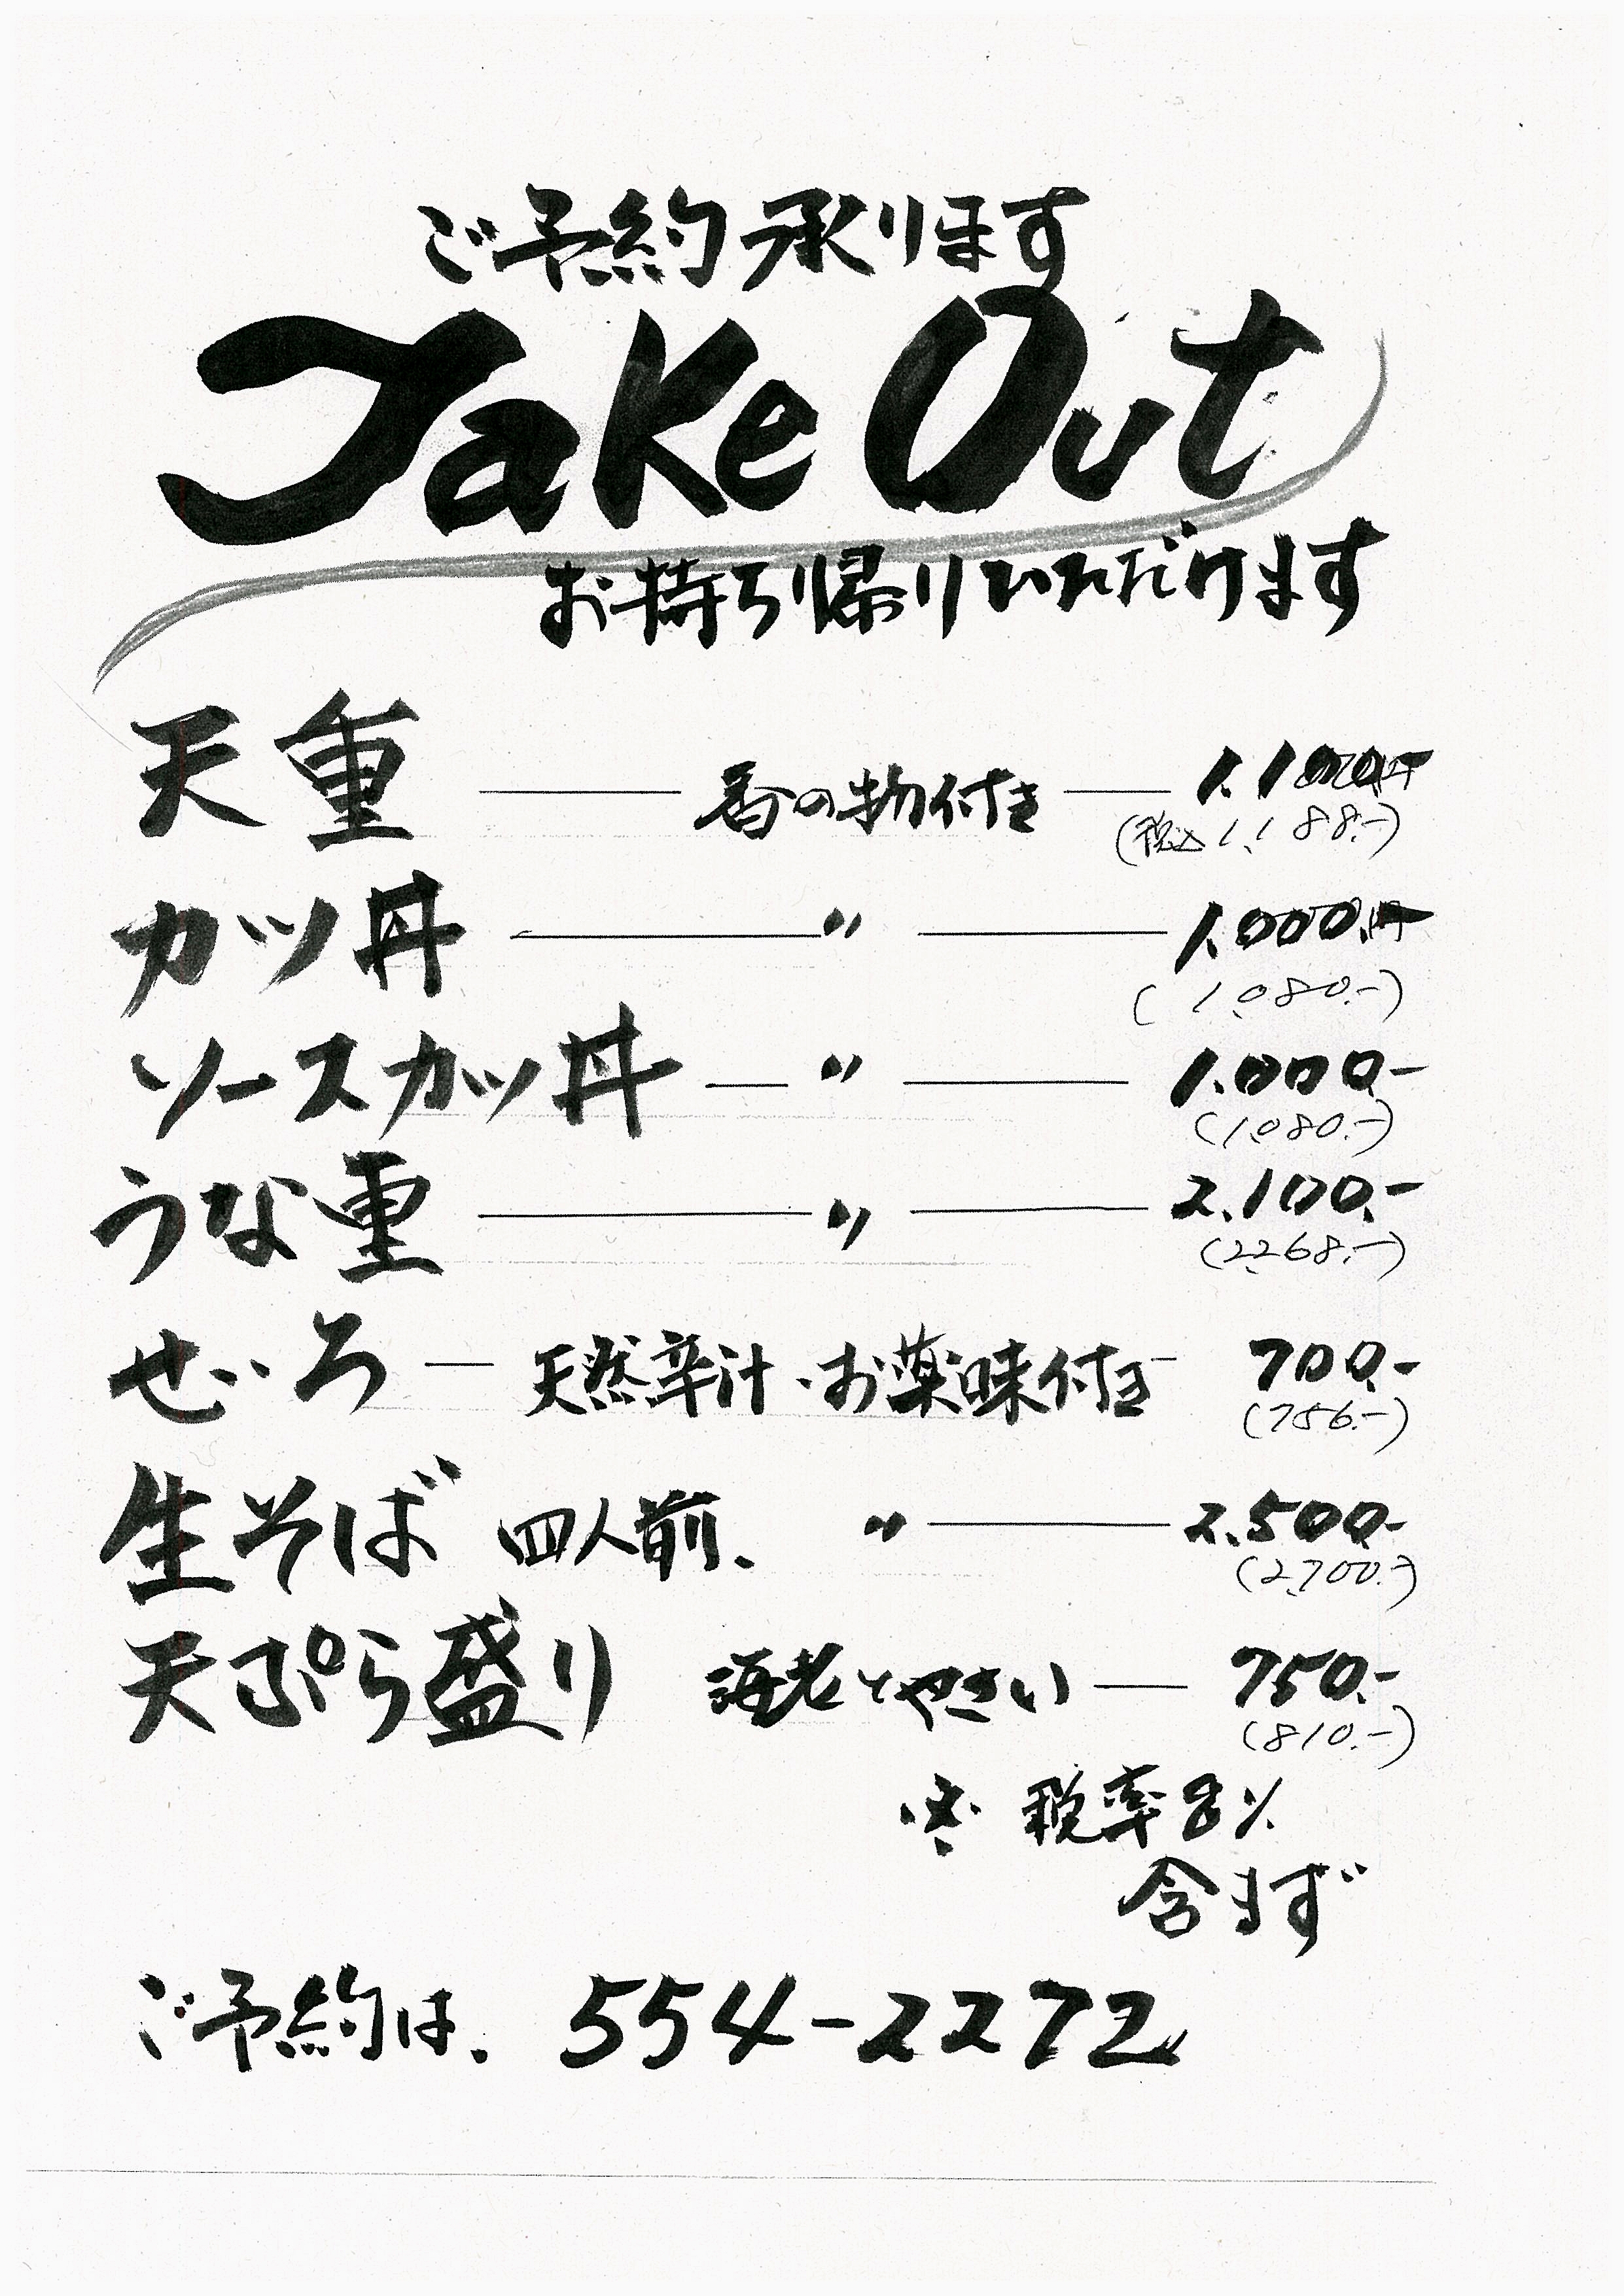 ご予約承ります
Take Out
お持ち帰りいただけます
天重 香の物付き 1.100.-
(税込 1,188.-)
カツ丼 〃 1.000.-
( 1,080.-)
ソースカツ丼 〃 1.000.-
(1,080.-)
うな重 〃 2.100.-
(2,268.-)
せいろ 天然辛汁・お薬味付き 700.-
(756.-)
生そば 四人前、 〃 2.500.-
(2,700.-)
天ぷら盛り 海老とやさい 750.-
(810.-)
※ 税率8%
含まず
ご予約は、 554-2272